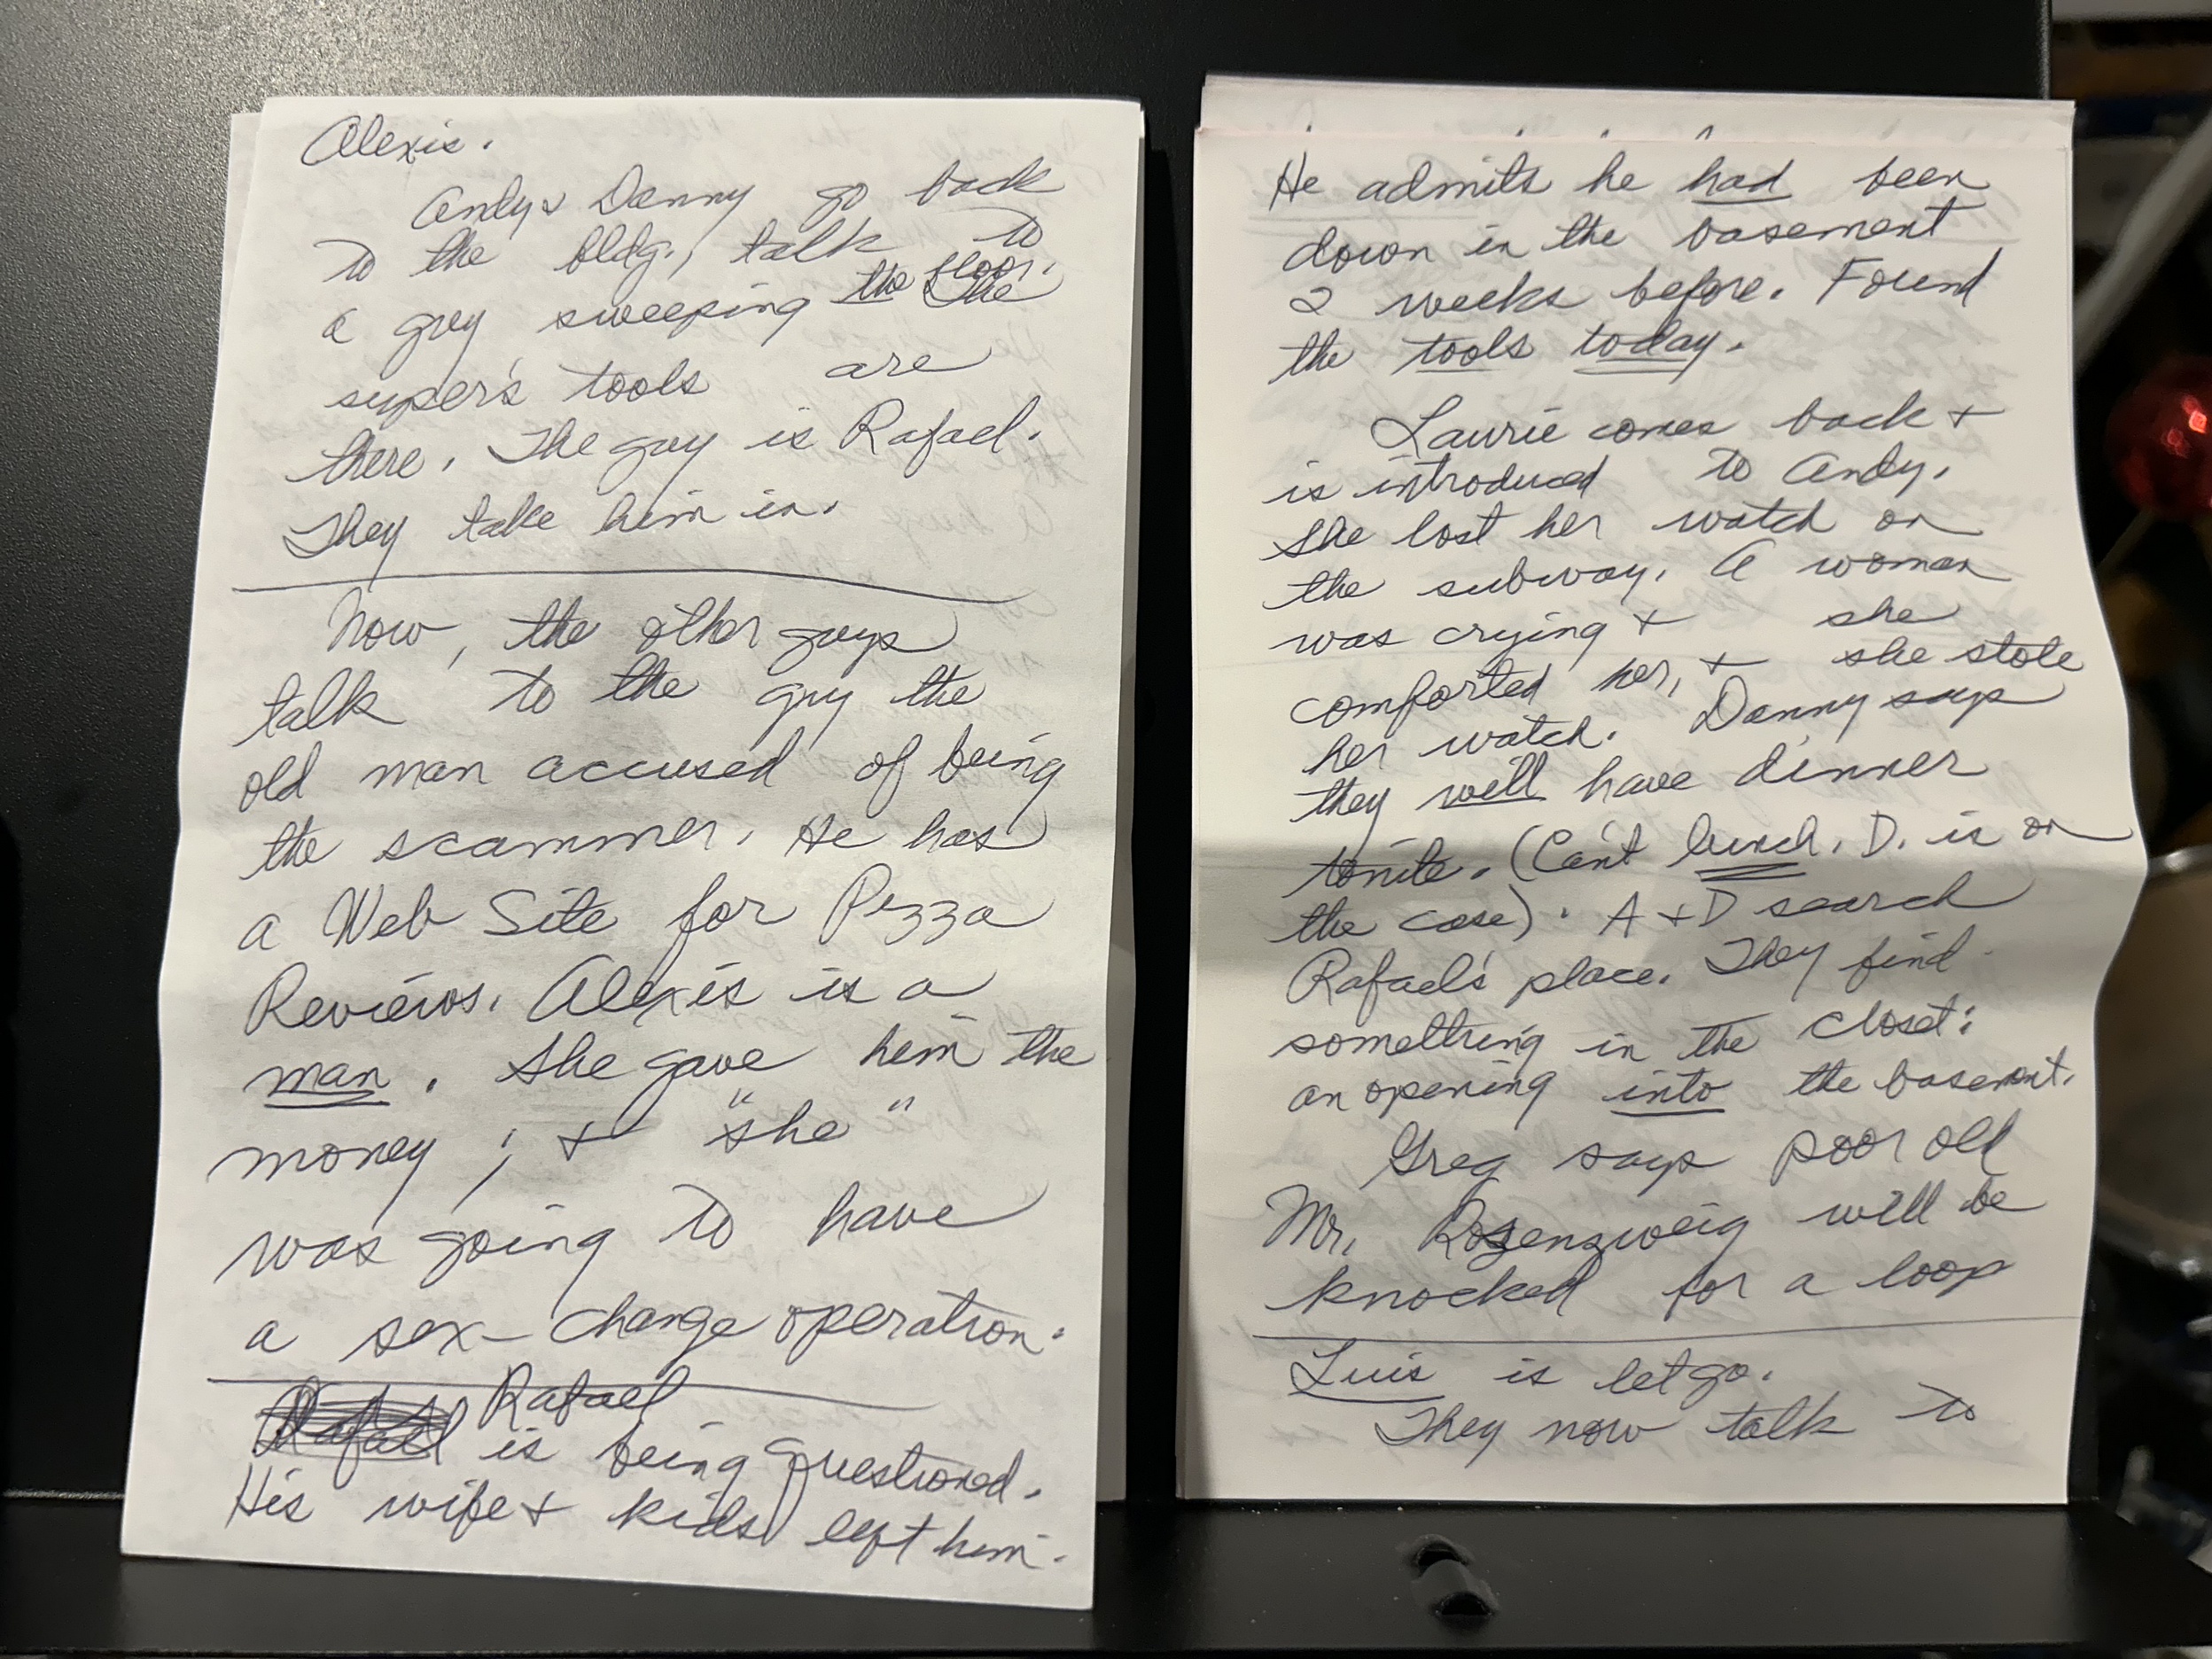 Alexis.
Andy & Danny go back
to the bldg., talk to
a guy sweeping the floor. The
super's tools are
there. The guy is Rafael.
They take him in.
Now, the other guys
talk to the guy the
old man accused of being
the scammer. He has
a Web Site for Pizza
Reviews. Alexis is a
man. She gave him the
money; & "she"
was going to have
a sex-change operation.
Rafael Rafael
is being questioned.
His wife & kids left him.
He admits he had been
down in the basement
2 weeks before. Found
the tools today.
Laurie comes back &
is introduced to Andy.
She lost her watch on
the subway. A woman
was crying & she
comforted her, & she stole
her watch. Danny says
they will have dinner
tonite. (Can't lunch. D. is on
the case). A & D search
Rafael's place. They find
something in the closet:
an opening into the basement.
Greg says poor old
Mr. Rosenzweig will be
knocked for a loop
Luis is let go.
They now talk to